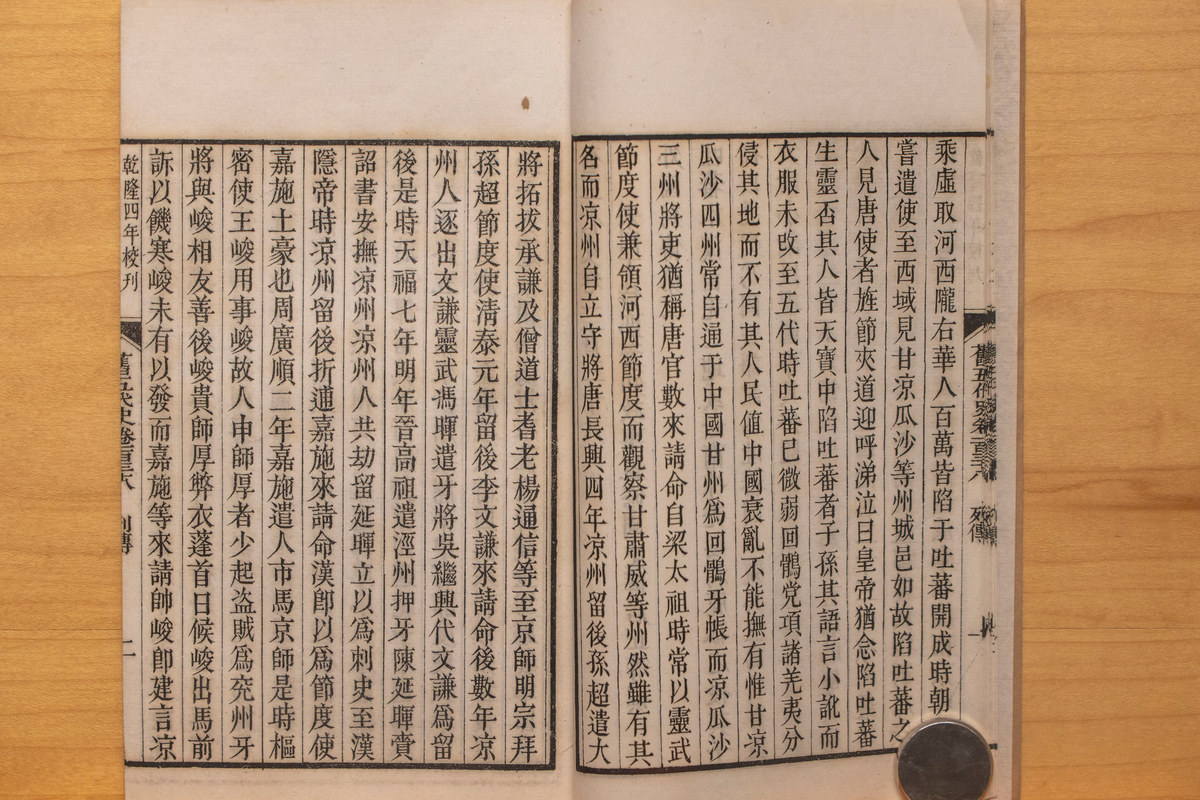 乘虛取河西隴右華人百萬皆陷于吐蕃開成時朝
嘗遣使至西域見甘凉瓜沙等州城邑如故陷吐蕃之
人見唐使者旌節夾道迎呼涕泣曰皇帝猶念陷吐蕃
生靈否其人皆天寶中陷吐蕃者子孫其語言小訛而
衣服未改至五代時吐蕃已微弱回鶻党項諸羌夷分
侵其地而不有其人民值中國衰亂不能撫有惟甘凉
瓜沙四州常自通于中國甘州爲回鶻牙帳而凉瓜沙
三州將吏猶稱唐官數來請命自梁太祖時常以靈武
節度使兼領河西節度而觀察甘肅威等州然雖有其
名而凉州自立守將唐長興四年凉州留後孫超遣大
將拓拔承謙及僧道士耆老楊通信等至京師明宗拜
孫超節度使清泰元年留後李文謙來請命後數年凉
州人逐出文謙靈武馮暉遣牙將吳繼興代文謙爲留
後是時天福七年明年晉高祖遣涇州押牙陳延暉賫
詔書安撫凉州凉州人共劫留延暉立以爲刺史至漢
隱帝時凉州留後折逋嘉施來請命漢卽以爲節度使
嘉施土豪也周廣順二年嘉施遣人市馬京師是時樞
密使王峻用事峻故人申師厚者少起盗賊爲兖州牙
將與峻相友善後峻貴師厚弊衣蓬首日候峻出馬前
訴以饑寒峻未有以發而嘉施等來請帥峻卽建言凉
乾隆四年校刊
舊五代史卷一百三十八
列傳
二